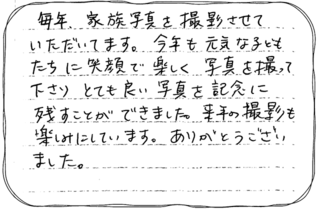 毎年、家族写真を撮影させて
いただいてます。今年も元気な子ども
たちに笑顔で楽しく写真を撮って
下さりとても良い写真を記念に
残すことができました。来年の撮影も
楽しみにしています。ありがとうござい
ました。